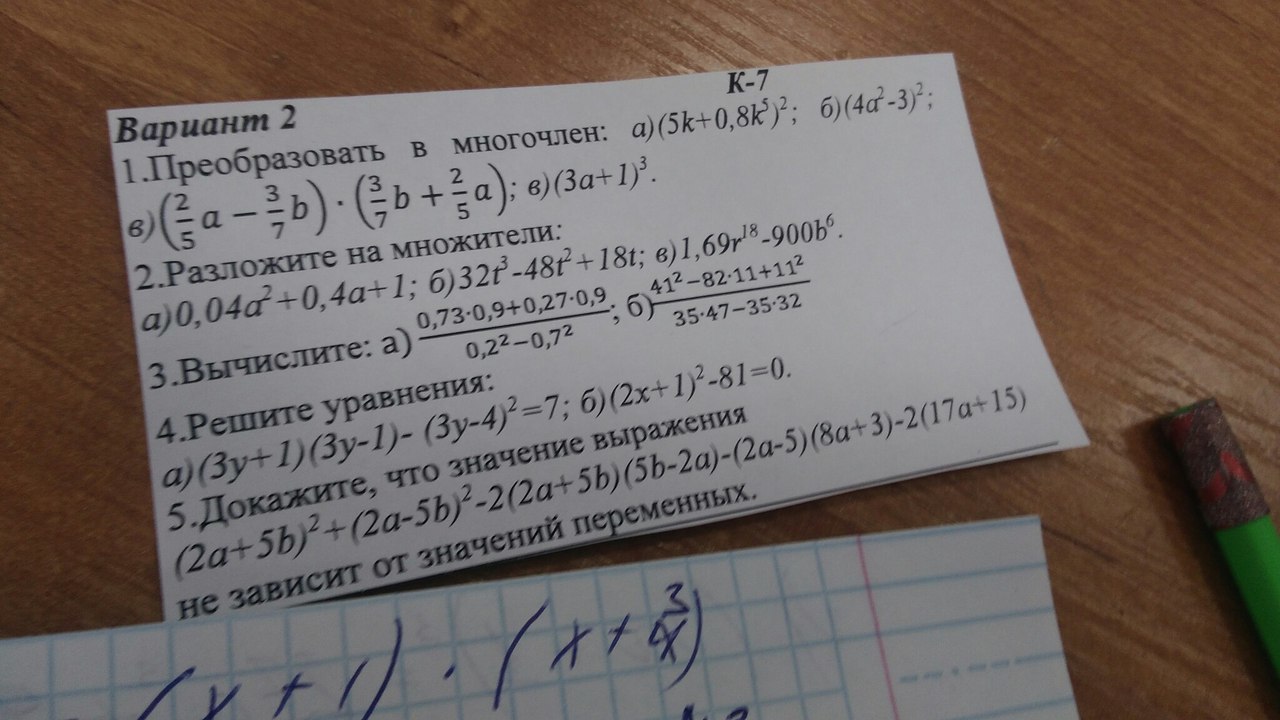 Вариант 2
К-7
1.Преобразовать в многочлен: а)(5k+0,8k⁵)²; б)(4a²-3)²;
в)(2/5 a − 3/7 b)·(3/7 b + 2/5 a); в)(3a+1)³.
2.Разложите на множители:
а)0,04a²+0,4a+1; б)32t³-48t²+18t; в)1,69r¹⁸-900b⁶.
3.Вычислите: а) (0,73·0,9+0,27·0,9)/(0,2²−0,7²); б) (41²−82·11+11²)/(35·47−35·32)
4.Решите уравнения:
а)(3y+1)(3y-1)- (3y-4)²=7; б)(2x+1)²-81=0.
5.Докажите, что значение выражения
(2a+5b)²+(2a-5b)²-2(2a+5b)(5b-2a)-(2a-5)(8a+3)-2(17a+15)
не зависит от значений переменных.
(x+1)·(x+